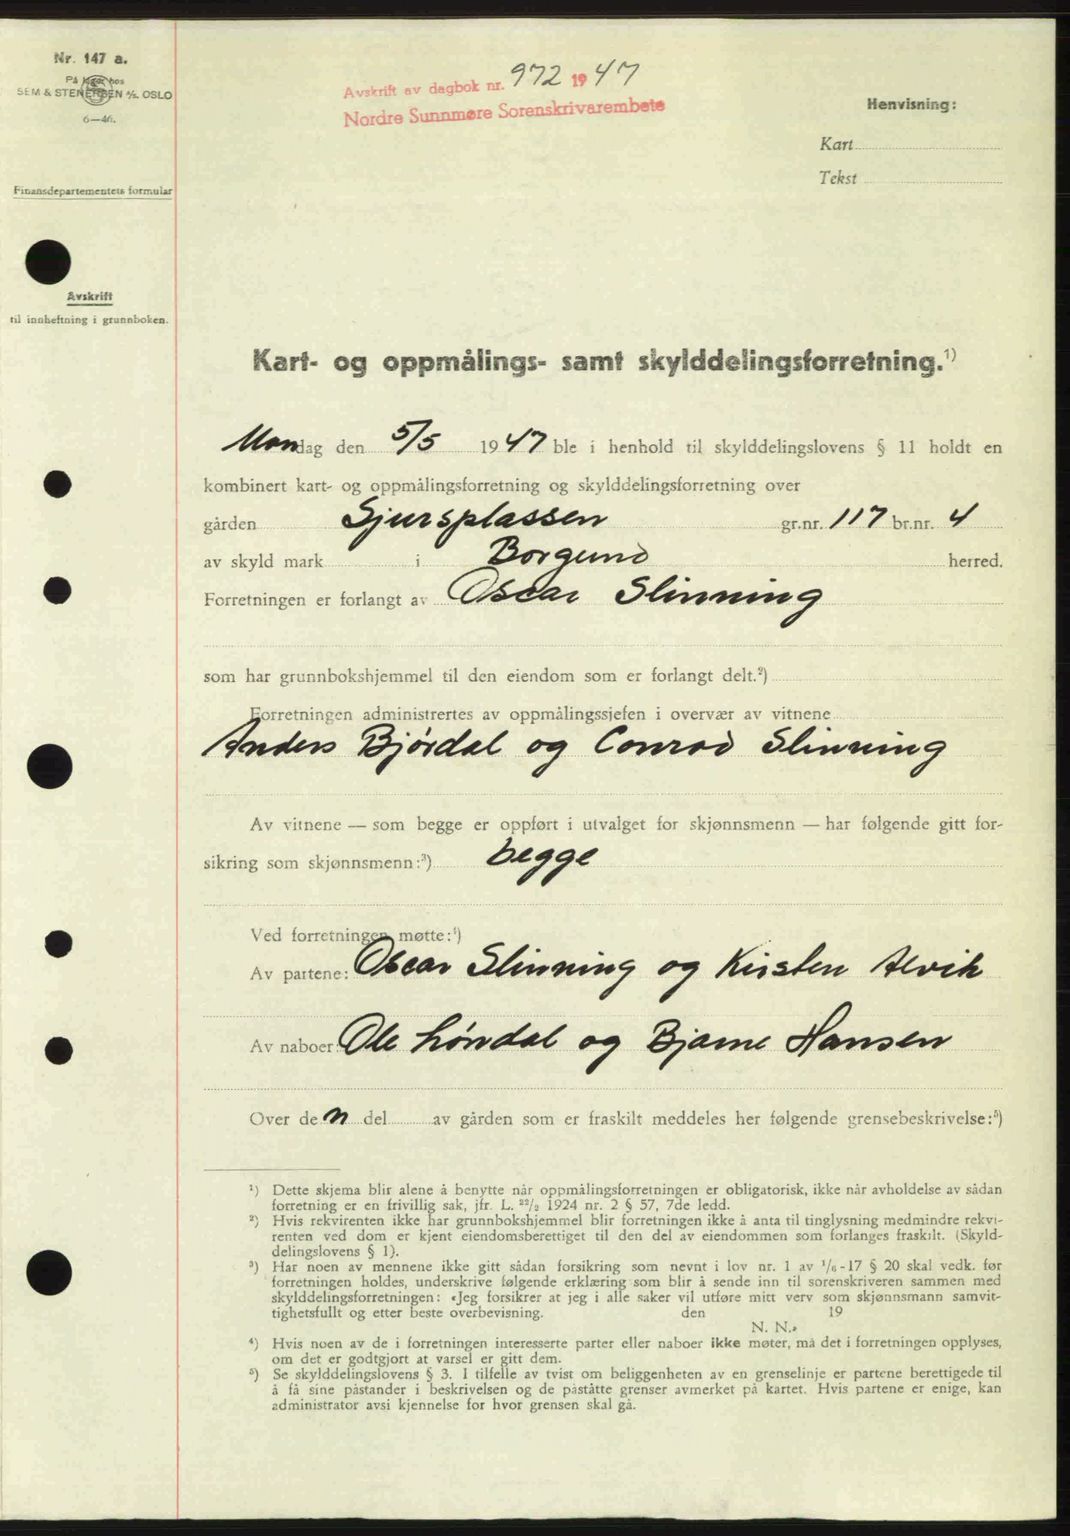 Nr. 147 a.
På lager hos
SEM & STENERSEN A/S. OSLO
6—46.
Finansdepartementets formular
Avskrift
til innheftning i grunnboken.
Avskrift av dagbok nr. 972 1947
Nordre Sunnmøre Sorenskrivarembete
Henvisning:
Kart
Tekst
Kart- og oppmålings- samt skylddelingsforretning.¹)
Mandag den 5/5 1947 ble i henhold til skylddelingslovens § 11 holdt en
kombinert kart- og oppmålingsforretning og skylddelingsforretning over
gården Sjursplassen gr.nr. 117 br.nr. 4
av skyld mark i Borgund herred.
Forretningen er forlangt av Oscar Slinning
som har grunnbokshjemmel til den eiendom som er forlangt delt.²)
Forretningen administrertes av oppmålingssjefen i overvær av vitnene
Anders Bjørdal og Conrad Slinning
Av vitnene — som begge er oppført i utvalget for skjønnsmenn — har følgende gitt for-
sikring som skjønnsmenn:³) begge
Ved forretningen møtte:⁴)
Av partene: Oscar Slinning og Kirsten Alvik
Av naboer: Ole Høndal og Bjarne Hansen
Over den del av gården som er fraskilt meddeles her følgende grensebeskrivelse:⁵)
¹) Dette skjema blir alene å benytte når oppmålingsforretningen er obligatorisk, ikke når avholdelse av sådan
forretning er en frivillig sak, jfr. L. ²²/₂ 1924 nr. 2 § 57, 7de ledd.
²) Hvis rekvirenten ikke har grunnbokshjemmel blir forretningen ikke å anta til tinglysning medmindre rekvi-
renten ved dom er kjent eiendomsberettiget til den del av eiendommen som forlanges fraskilt. (Skyld-
delingslovens § 1).
³) Har noen av mennene ikke gitt sådan forsikring som nevnt i lov nr. 1 av ¹/₆-17 § 20 skal vedk. før
forretningen holdes, underskrive følgende erklæring som blir å sende inn til sorenskriveren sammen med
skylddelingsforretningen: «Jeg forsikrer at jeg i alle saker vil utføre mitt verv som skjønnsmann samvit-
tighetsfullt og etter beste overbevisning. den 19
N. N.»
⁴) Hvis noen av de i forretningen interesserte parter eller naboer ikke møter, må det i forretningen opplyses,
om det er godtgjort at varsel er gitt dem.
⁵) Se skylddelingslovens § 3. I tilfelle av tvist om beliggenheten av en grenselinje er partene berettigede til
å få sine påstander i beskrivelsen og de påståtte grenser avmerket på kartet. Hvis partene er enige, kan
administrator avsi kjennelse for hvor grensen skal gå.